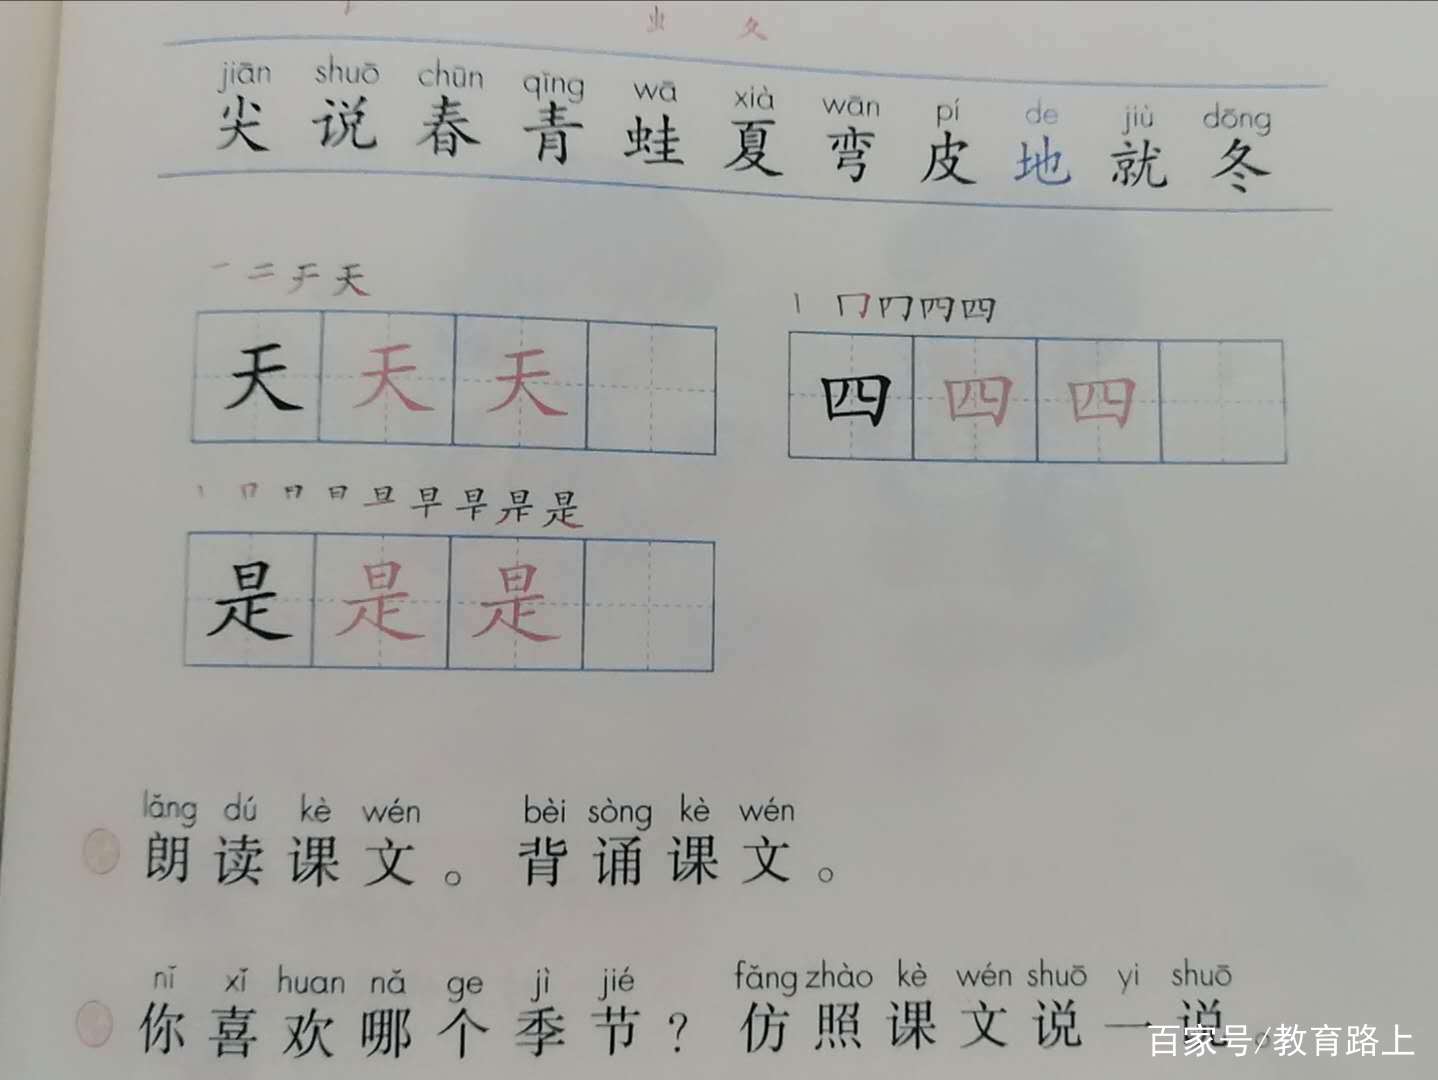 虫 夂
jiān shuō chūn qīng wā xià wān pí de jiù dōng
尖 说 春 青 蛙 夏 弯 皮 地 就 冬
一 二 于 天
丨 冂 叼 四 四
天 天 天
四 四 四
丨 冂 日 日 旦 早 早 昰 是
是 是 是
lǎng dú kè wén bèi sòng kè wén
朗 读 课 文 。 背 诵 课 文 。
nǐ xǐ huan nǎ ge jì jié fǎng zhào kè wén shuō yi shuō
你 喜 欢 哪 个 季 节 ? 仿 照 课 文 说 一 说 。
百家号/教育路上